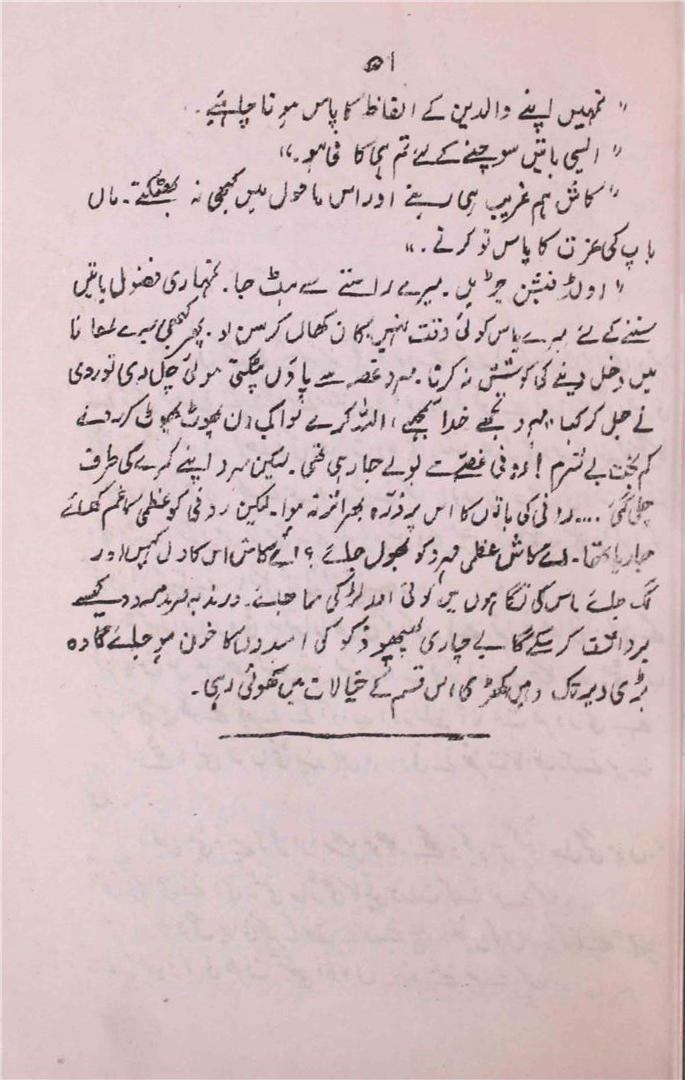 ۵۱
"تمہیں اپنے والدین کے الفاظ کا پاس ہونا چاہئیے۔
"ایسی باتیں سوچنے کے لئے تم ہی کافی ہو۔"
"کاش ہم غریب ہی رہتے اور اس ماحول میں کبھی نہ بھٹکتے۔ ماں
باپ کی عزت کا پاس تو کرتے۔"
"اولڈ فیشن چڑیل۔ میرے راستے سے ہٹ جا۔ تمہاری فضول باتیں
سننے کے لئے میرے پاس کوئی وقت نہیں کان کھال کر سن لو۔ پھر کبھی میرے معاملات
میں دخل دینے کی کوشش نہ کرنا۔ مہرد غصہ سے پاؤں پٹکتی ہوئی چل دی تو روفی
نے جل کر کہا "مہرد تجھے خدا سمجھے، اللہ کرے تو ایک دن پھوٹ پھوٹ کر روئے
کم بخت بے شرم! روفی غصے سے بولے جا رہی تھی۔ لیکن مہرد اپنے کمرے کی طرف
چلی گئی .... روفی کی باتوں کا اس پر ذرہ بھر اثر نہ ہوا۔ لیکن روفی کو عظمی کا غم کھائے
جا رہا تھا۔ اے کاش عظمی مہرد کو بھول جائے؟ اے کاش اس کا دل کہیں اور
لگ جائے اس کی نگاہوں میں کوئی اور لڑکی سما جائے۔ ورنہ یہ صدمہ وہ کیسے
برداشت کر سکے گا بے چاری پھپھو کی امیدوں کا خون ہو جائے گا وہ
بڑی دیر تک وہیں کھڑی اس قسم کے خیالات میں کھوئی رہی۔